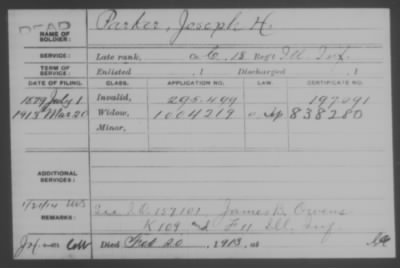 DEAD
NAME OF SOLDIER: Parker, Joseph H.
SERVICE: Late rank, Co. C, 18 Reg't Ill. Inf.
TERM OF SERVICE: Enlisted , 1 Discharged , 1
DATE OF FILING. CLASS. APPLICATION NO. LAW. CERTIFICATE NO.
1879 July 1 Invalid, 295.499 197.091
1913 Mar. 20 Widow, 1004219 838280
Minor,
ADDITIONAL SERVICES:
REMARKS: 157101, James B. Owens
K 109 and F 11 Ill. Inf.
Died Feb 20, 1913, at